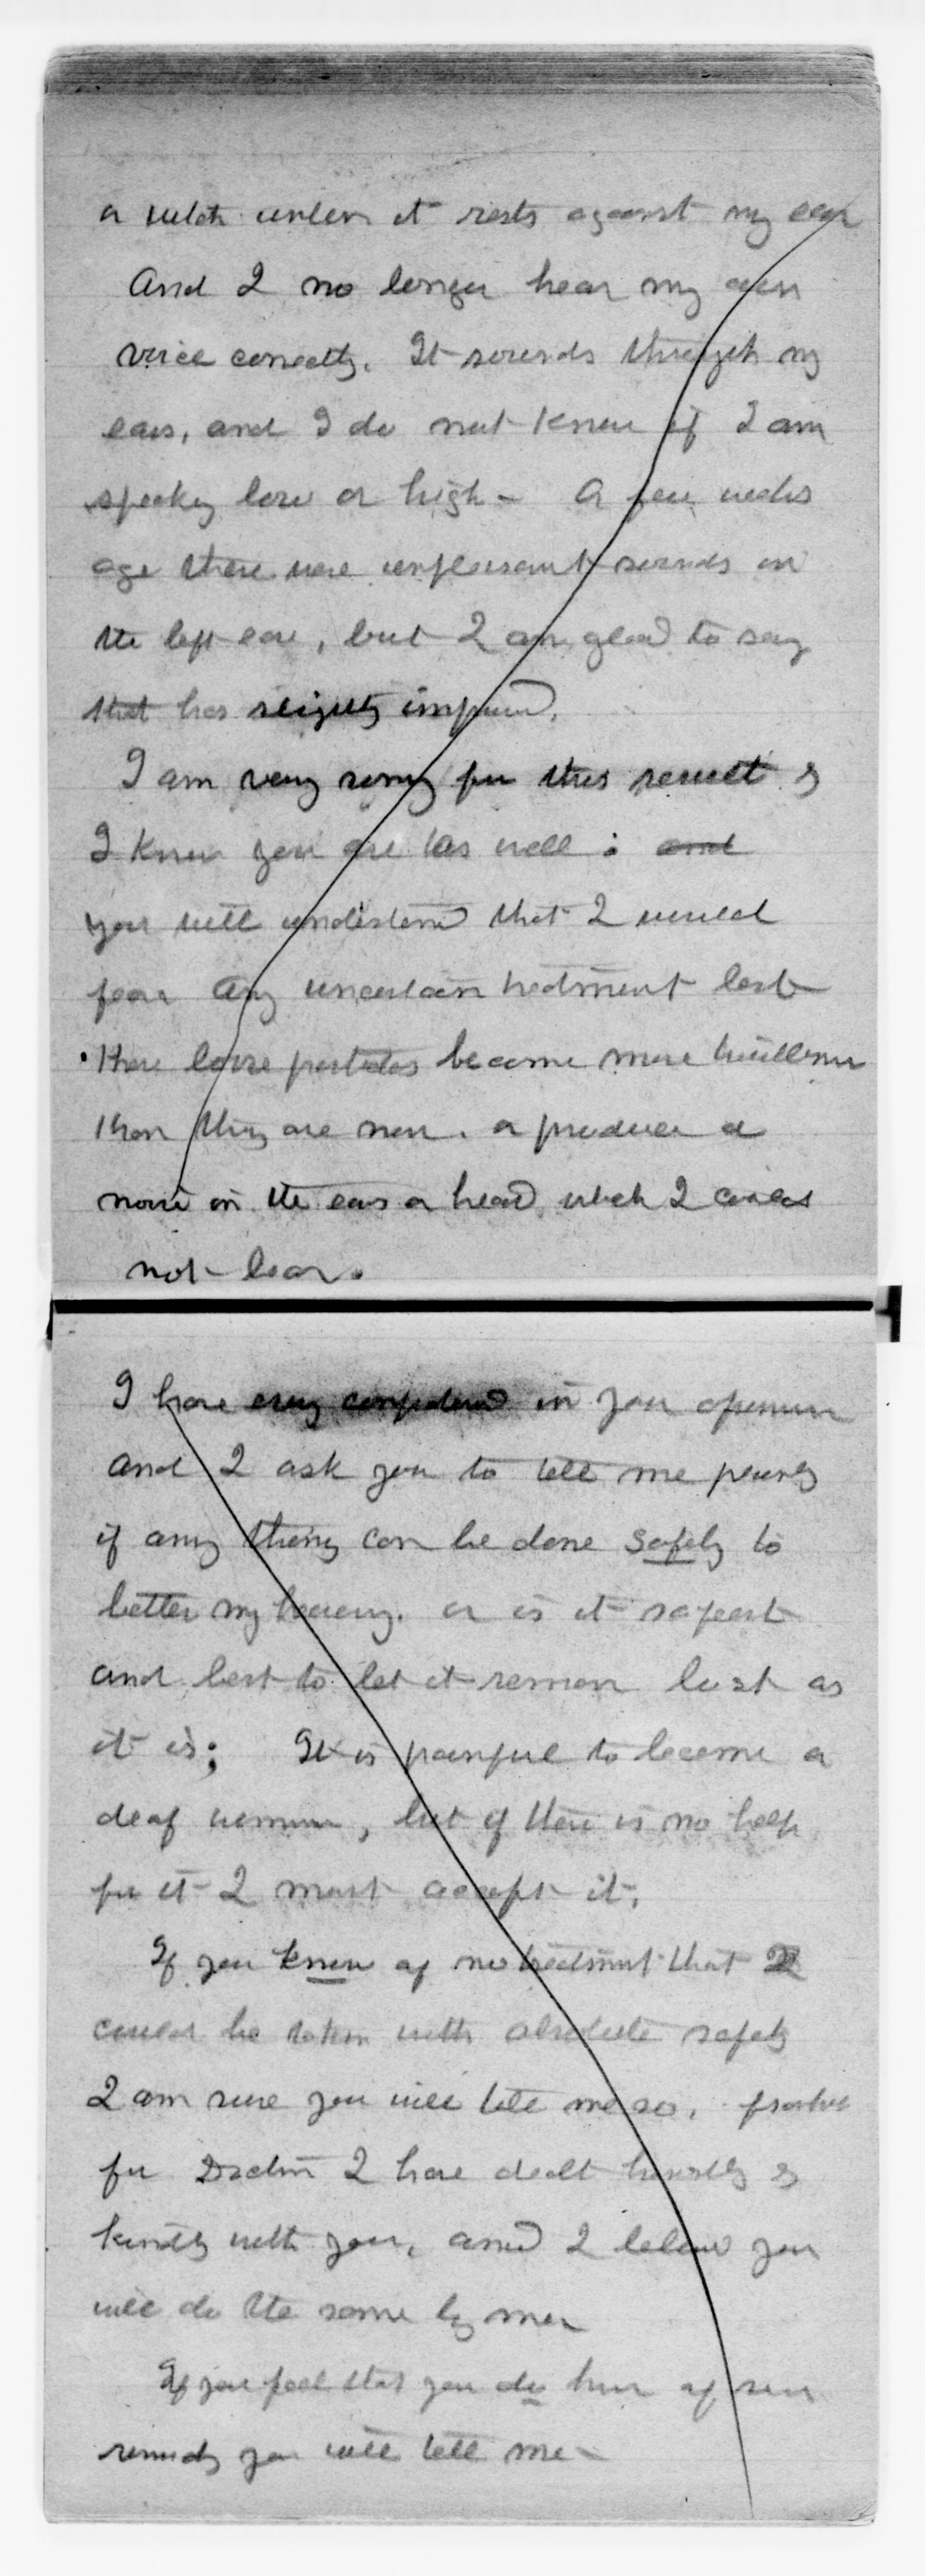 a watch unless it rests against my ear
And I no longer hear my own
voice correctly. It sounds through my
ears, and I do not know if I am
speaking low or high - A few weeks
ago there were unpleasant sounds in
the left ear, but I am glad to say
that has slightly improved.
I am very sorry for this result &
I know you are as well : and
you will understand that I would
fear any uncertain treatment lest
these loose particles become more troublesome
than they are now. or produce a
noise in the ears or head which I could
not bear.
I have every confidence in your opinion
and I ask you to tell me plainly
if any thing can be done safely to
better my hearing. or is it safest
and best to let it remain just as
it is; It is painful to become a
deaf woman, but if there is no help
for it I must accept it.
If you know of no treatment that I
could be taken with absolute safety
I am sure you will tell me so.
for Doctor I have dealt honestly &
kindly with you, and I believe you
will do the same by me
If you feel that you do know of some
remedy you will tell me -